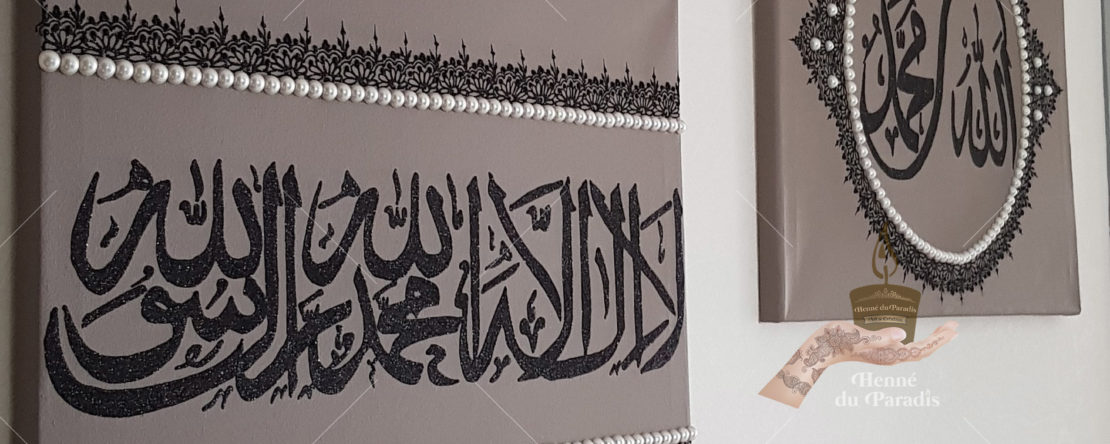 لا اله الا الله محمد رسول الله
الله محمد
Henné du Paradis
Henné
du Paradis